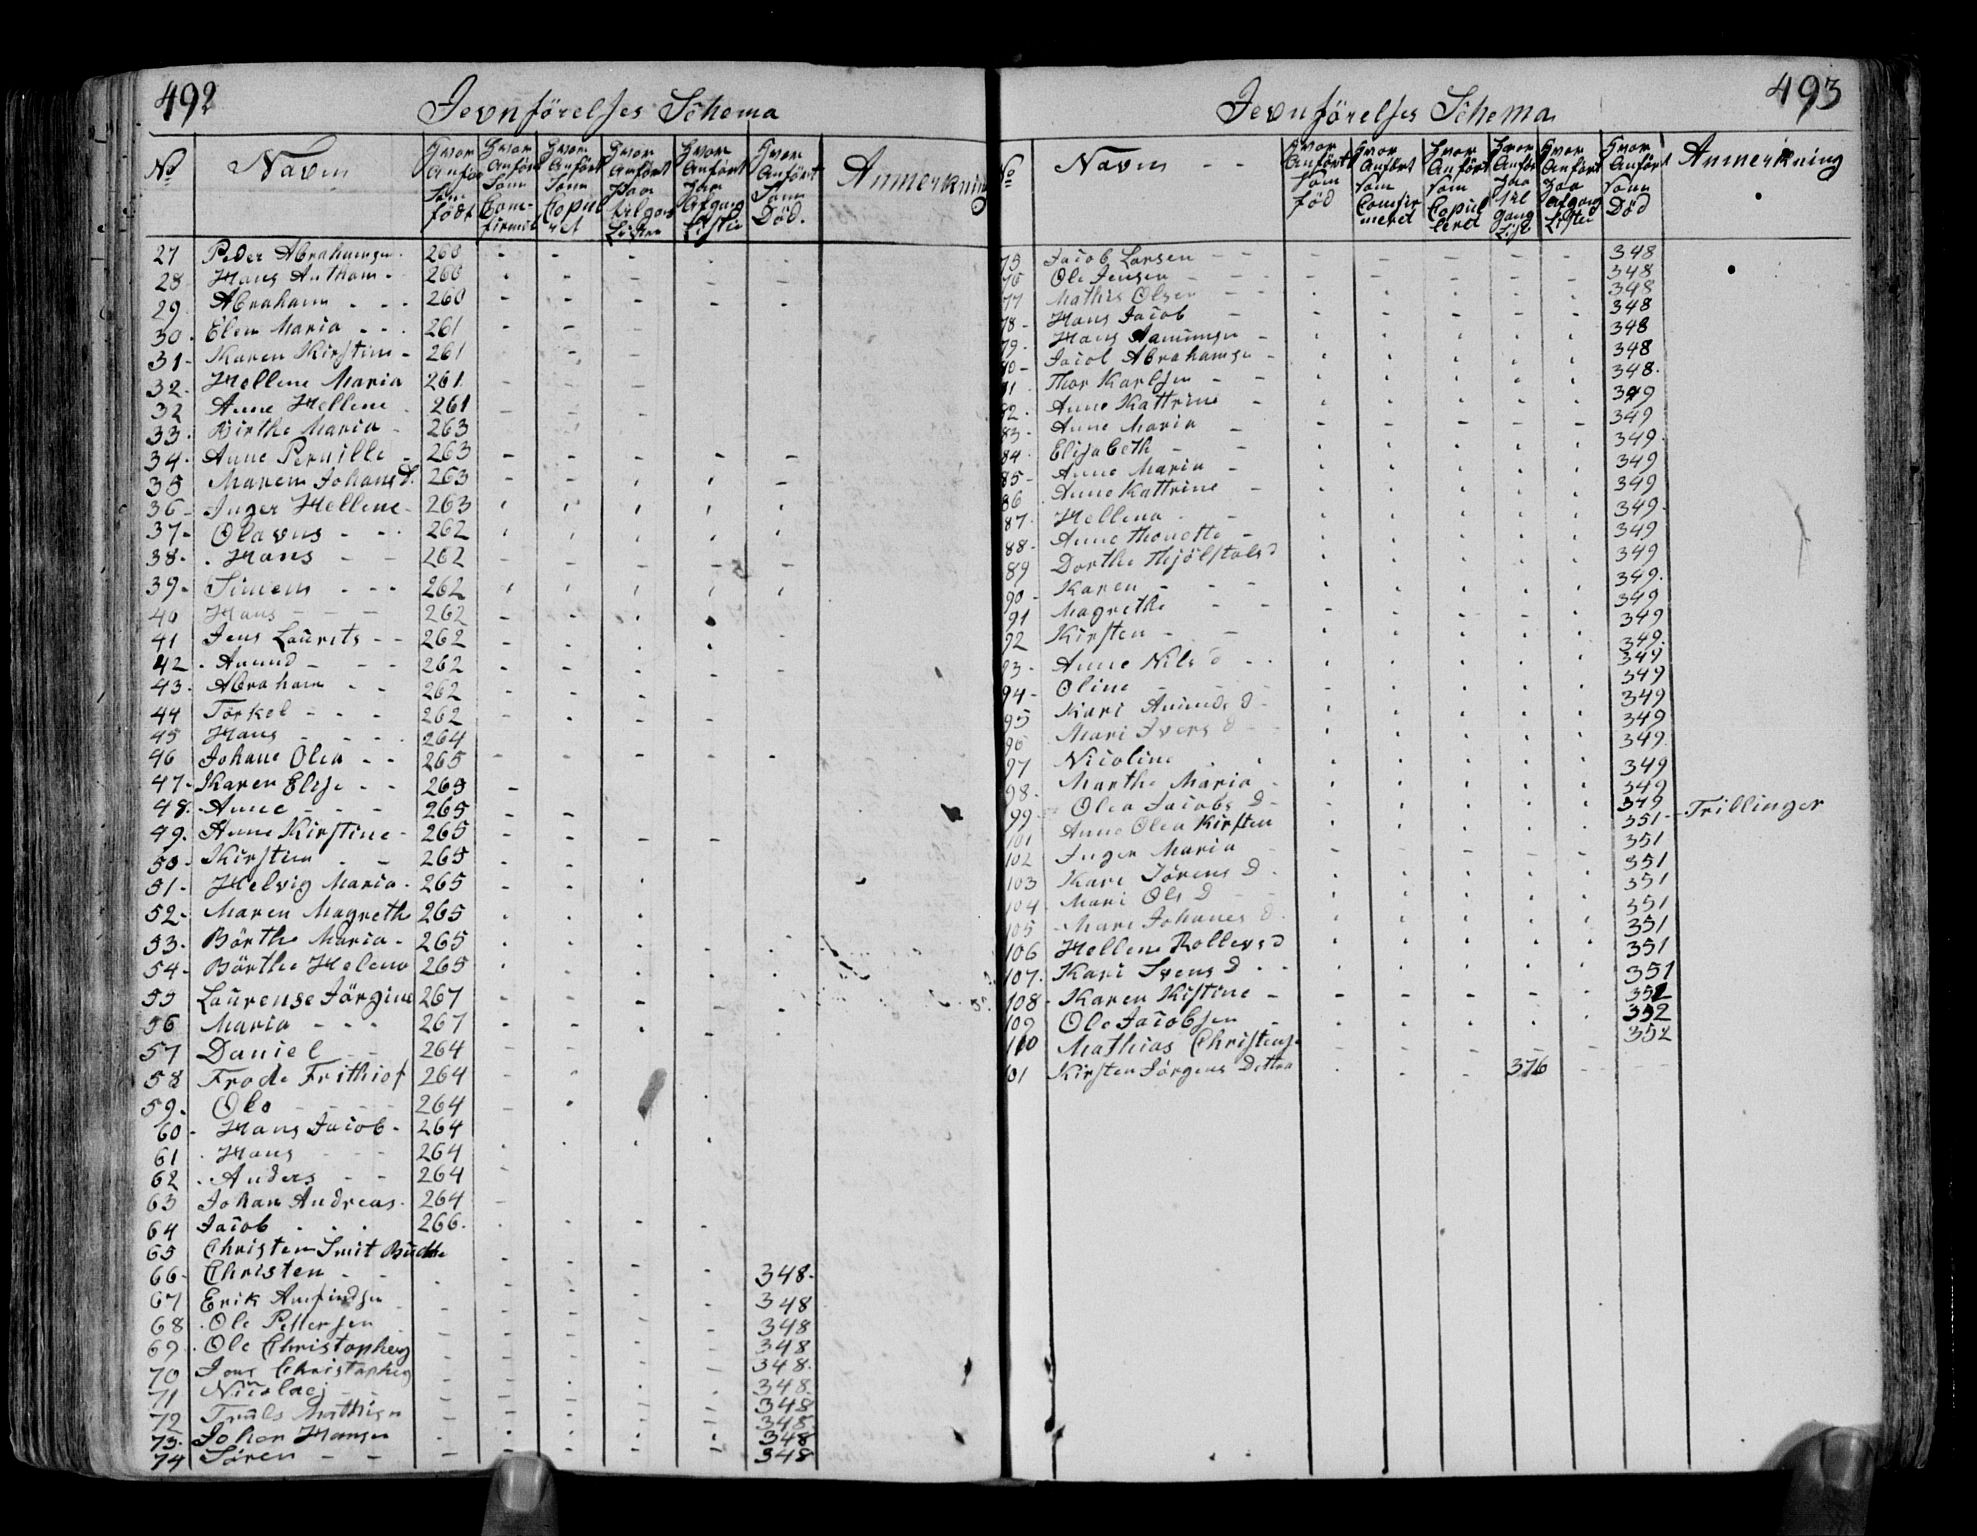 492
Jevnförelses Schema
No Navn Hvor Anfört Som født Hvor Anført Som Con-firmert Hvor Anført Som Copulert Hvor Anført Paa tilgangs Listen Hvor Anført Paa Afgangs Listen Hvor Anført Som Død. Anmerkning
27 Peder Abrahamsen 260
28 Hans Anthon 260
29 Abraham 260
30 Elen Maria 261
31 Karen Kirstine 261
32 Hellene Maria 261
32 Anne Hellene 261
33 Birthe Maria 263
34 Anne Pernille 263
35 Maren Johans D. 263
36 Inger Hellene 263
37 Olavus 262
38 Hans 262
39 Simen 262
40 Hans 262
41 Jens Laurits 262
42 Amund 262
43 Abraham 262
44 Torkel 262
45 Hans 264
46 Johane Olea 265
47 Karen Elise 265
48 Anne 265
49 Anne Kirstine 265
50 Kirsten 265
51 Helvig Maria 265
52 Maren Magrethe 265
53 Börthe Maria 265
54 Börthe Helene 265
55 Laurense Jörgine 267
56 Maria 267
57 Daniel 264
58 Frode Frithiof 264
59 Ole 264
60 Hans Jacob 264
61 Hans 264
62 Anders 264
63 Johan Andreas 264
64 Jacob 266
65 Christen Smit
66 Christen 348
67 Erik 348
68 Ole Pettersen 348
69 Ole Christophers 348
70 Jens Christophers 348
71 Nicolaej 348
72 Truls Mathisen 348
73 Johan Hansen 348
74 Sören 348
493
Jevnförelses Schema
No Navn Hvor Anfört som fød Hvor Anfört som Confirmeret Hvor Anfört som Copuleret Hvor Anfør paa Tilgangs List Hvor Anfört paa Afgangs Listen Hvor Anfört som Död Anmerkning
75 Jacob Larsen 348
76 Ole Jensen 348
77 Mathis Olsen 348
78 Hans Jacob 348
79 Hans Aamunsen 348
80 Jacob Abrahamsen 348
81 Thor Karlsen 348
82 Anne Kattrine 349
83 Anne Maria 349
84 Elisabeth 349
85 Anne Maria 349
86 Anne Kattrine 349
87 Hellena 349
88 Anne Thonette 349
89 Dorthe Thjölstols d 349
90 Karen 349
91 Magrethe 349
92 Kirsten 349
93 Anne Nils d 349
94 Oline 349
95 Kari Amunds d 349
96 Mari Ivers d 349
97 Nicoline 349
98 Marthe Maria 349
99 Olea Jacobs D 349
101 Anne Olea Kirsten 351 Trillinger
102 Inger Maria 351
103 Kari Jörens D 351
104 Mari Ols D 351
105 Mari Johanes d 351
106 Hellene Rollevs d 351
107 Kari Svens D 351
108 Karen Kistine 351
109 Ole Jacobsen 352
110 Mathias Christens 352
101 Kirsten Jörgens Dettra 376
352